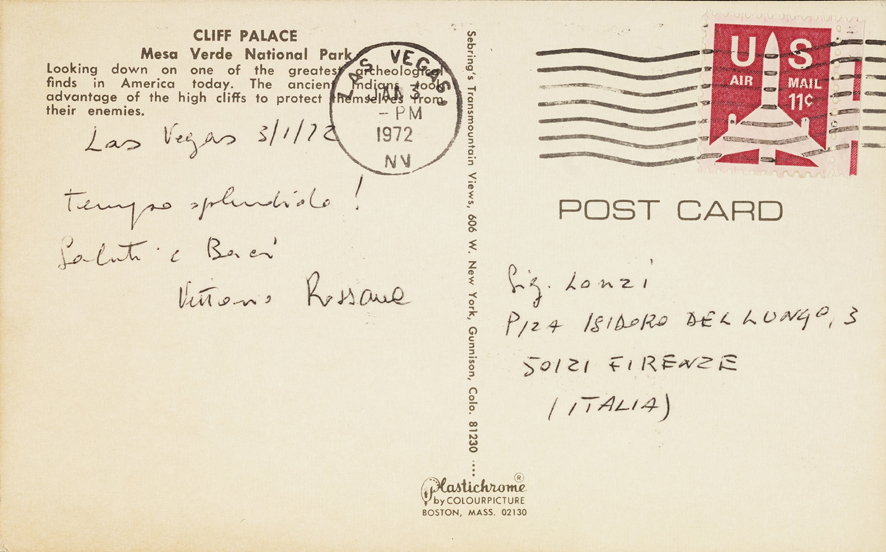 CLIFF PALACE
Mesa Verde National Park
Looking down on one of the greatest archeological
finds in America today. The ancient Indians took
advantage of the high cliffs to protect themselves from
their enemies.
Las Vegas 3/1/72
Tempo splendido!
Saluti e Baci
Vittorio Rossana
LAS VEGAS
JAN 3
-PM
1972
NV
Sebring's Transmountain Views, 606 W. New York, Gunnison, Colo. 81230
U S
AIR MAIL
11¢
POST CARD
Sig. Lonzi
P/ZA ISIDORO DEL LUNGO, 3
50121 FIRENZE
(ITALIA)
Plastichrome®
by COLOURPICTURE
BOSTON, MASS. 02130